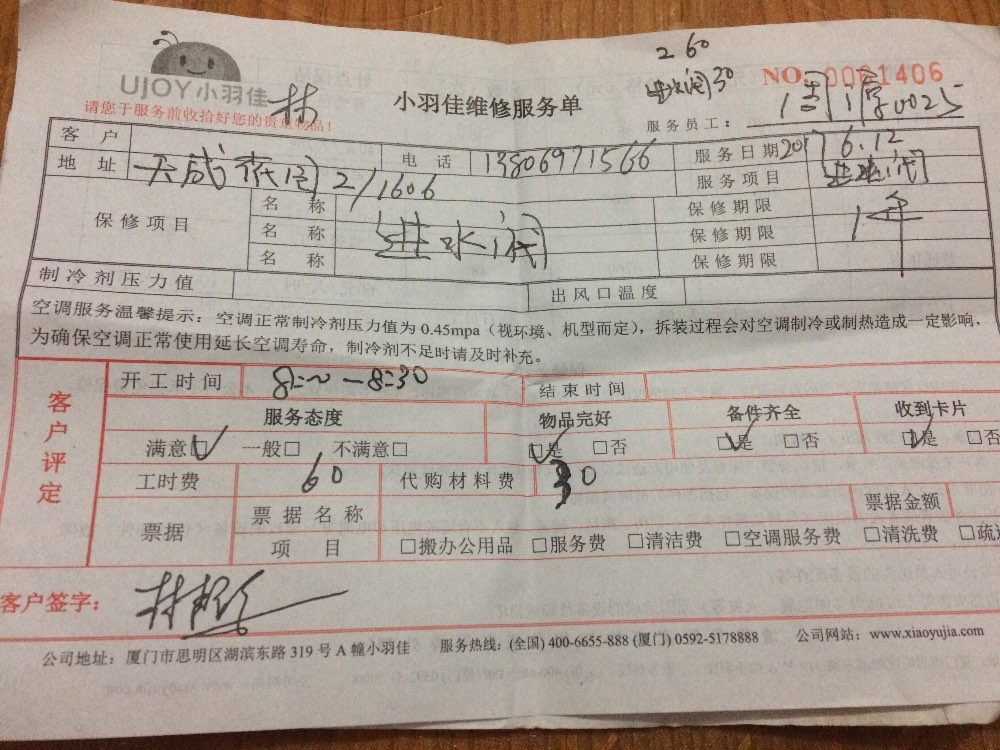 260
进水阀30
NO. 0061406
UJOY小羽佳
林
请您于服务前收拾好您的贵重物品!
小羽佳维修服务单
服务员工: 0025
客户
地址 天成花园2/1606
电话 13806971566
服务日期 2017 6.12
服务项目 进水阀
保修项目
名称 进水阀 保修期限 1年
名称 保修期限
名称 保修期限
制冷剂压力值 出风口温度
空调服务温馨提示:空调正常制冷剂压力值为0.45mpa(视环境、机型而定),拆装过程会对空调制冷或制热造成一定影响,
为确保空调正常使用延长空调寿命,制冷剂不足时请及时补充。
客户评定
开工时间 8:00-8:30 结束时间
服务态度 物品完好 备件齐全 收到卡片
满意☑ 一般□ 不满意□ ☑是 □否 ☑是 □否 ☑是 □否
工时费 60 代购材料费 30
票据 票据名称 票据金额
项目 □搬办公用品 □服务费 □清洁费 □空调服务费 □清洗费 □疏
客户签字: 林
公司地址:厦门市思明区湖滨东路319号A幢小羽佳 服务热线:(全国) 400-6655-888 (厦门) 0592-5178888 公司网站:www.xiaoyujia.com